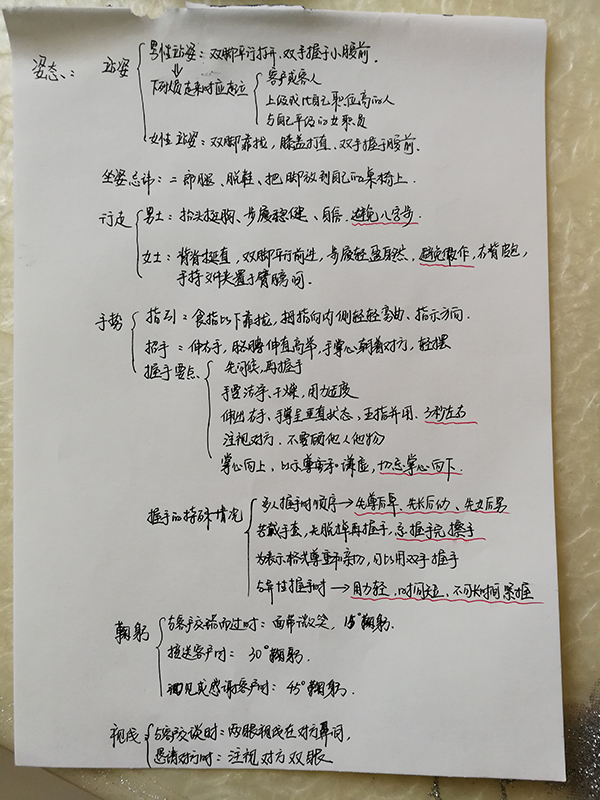 姿态：
站姿
男性站姿：双脚平行打开、双手握于小腹前．
下列人员走来时应起立
客户或客人
上级或比自己职位高的人
与自己平级的女职员
女性站姿：双脚靠拢，膝盖打直、双手握于腹前．
坐姿忌讳：二郎腿、脱鞋、把脚放到自己的桌椅上．
行走
男士：抬头挺胸、步履稳健、自信．避免八字步．
女士：背脊挺直，双脚平行前进，步履轻盈自然、避免做作，右背包，
手持文件夹置于臂膀间．
手势
指引：食指以下靠拢，拇指向内侧轻轻弯曲、指示方向．
招手：伸右手，胳膊伸直高举，手掌心朝着对方，轻摆
握手要点
先问候，再握手
手要洁净、干燥，用力适度
伸出右手、手掌呈垂直状态，五指并用．3秒左右
注视对方．不要顾他人他物
掌心向上，以示尊重和谦虚，切忌掌心向下．
握手的特殊情况
多人握手时顺序→先尊后卑、先长后幼、先女后男
若戴手套，先脱掉再握手，忌握手完擦手
为表示格外尊重和亲切，可以用双手握手
与异性握手时→用力轻、时间短、不可长时间紧握
鞠躬
与客户交错而过时：面带微笑，15°鞠躬．
接送客户时：30°鞠躬．
遇见或感谢客户时：45°鞠躬．
视线
与客户交谈时：两眼视线在对方鼻间，
恳请对方时：注视对方双眼